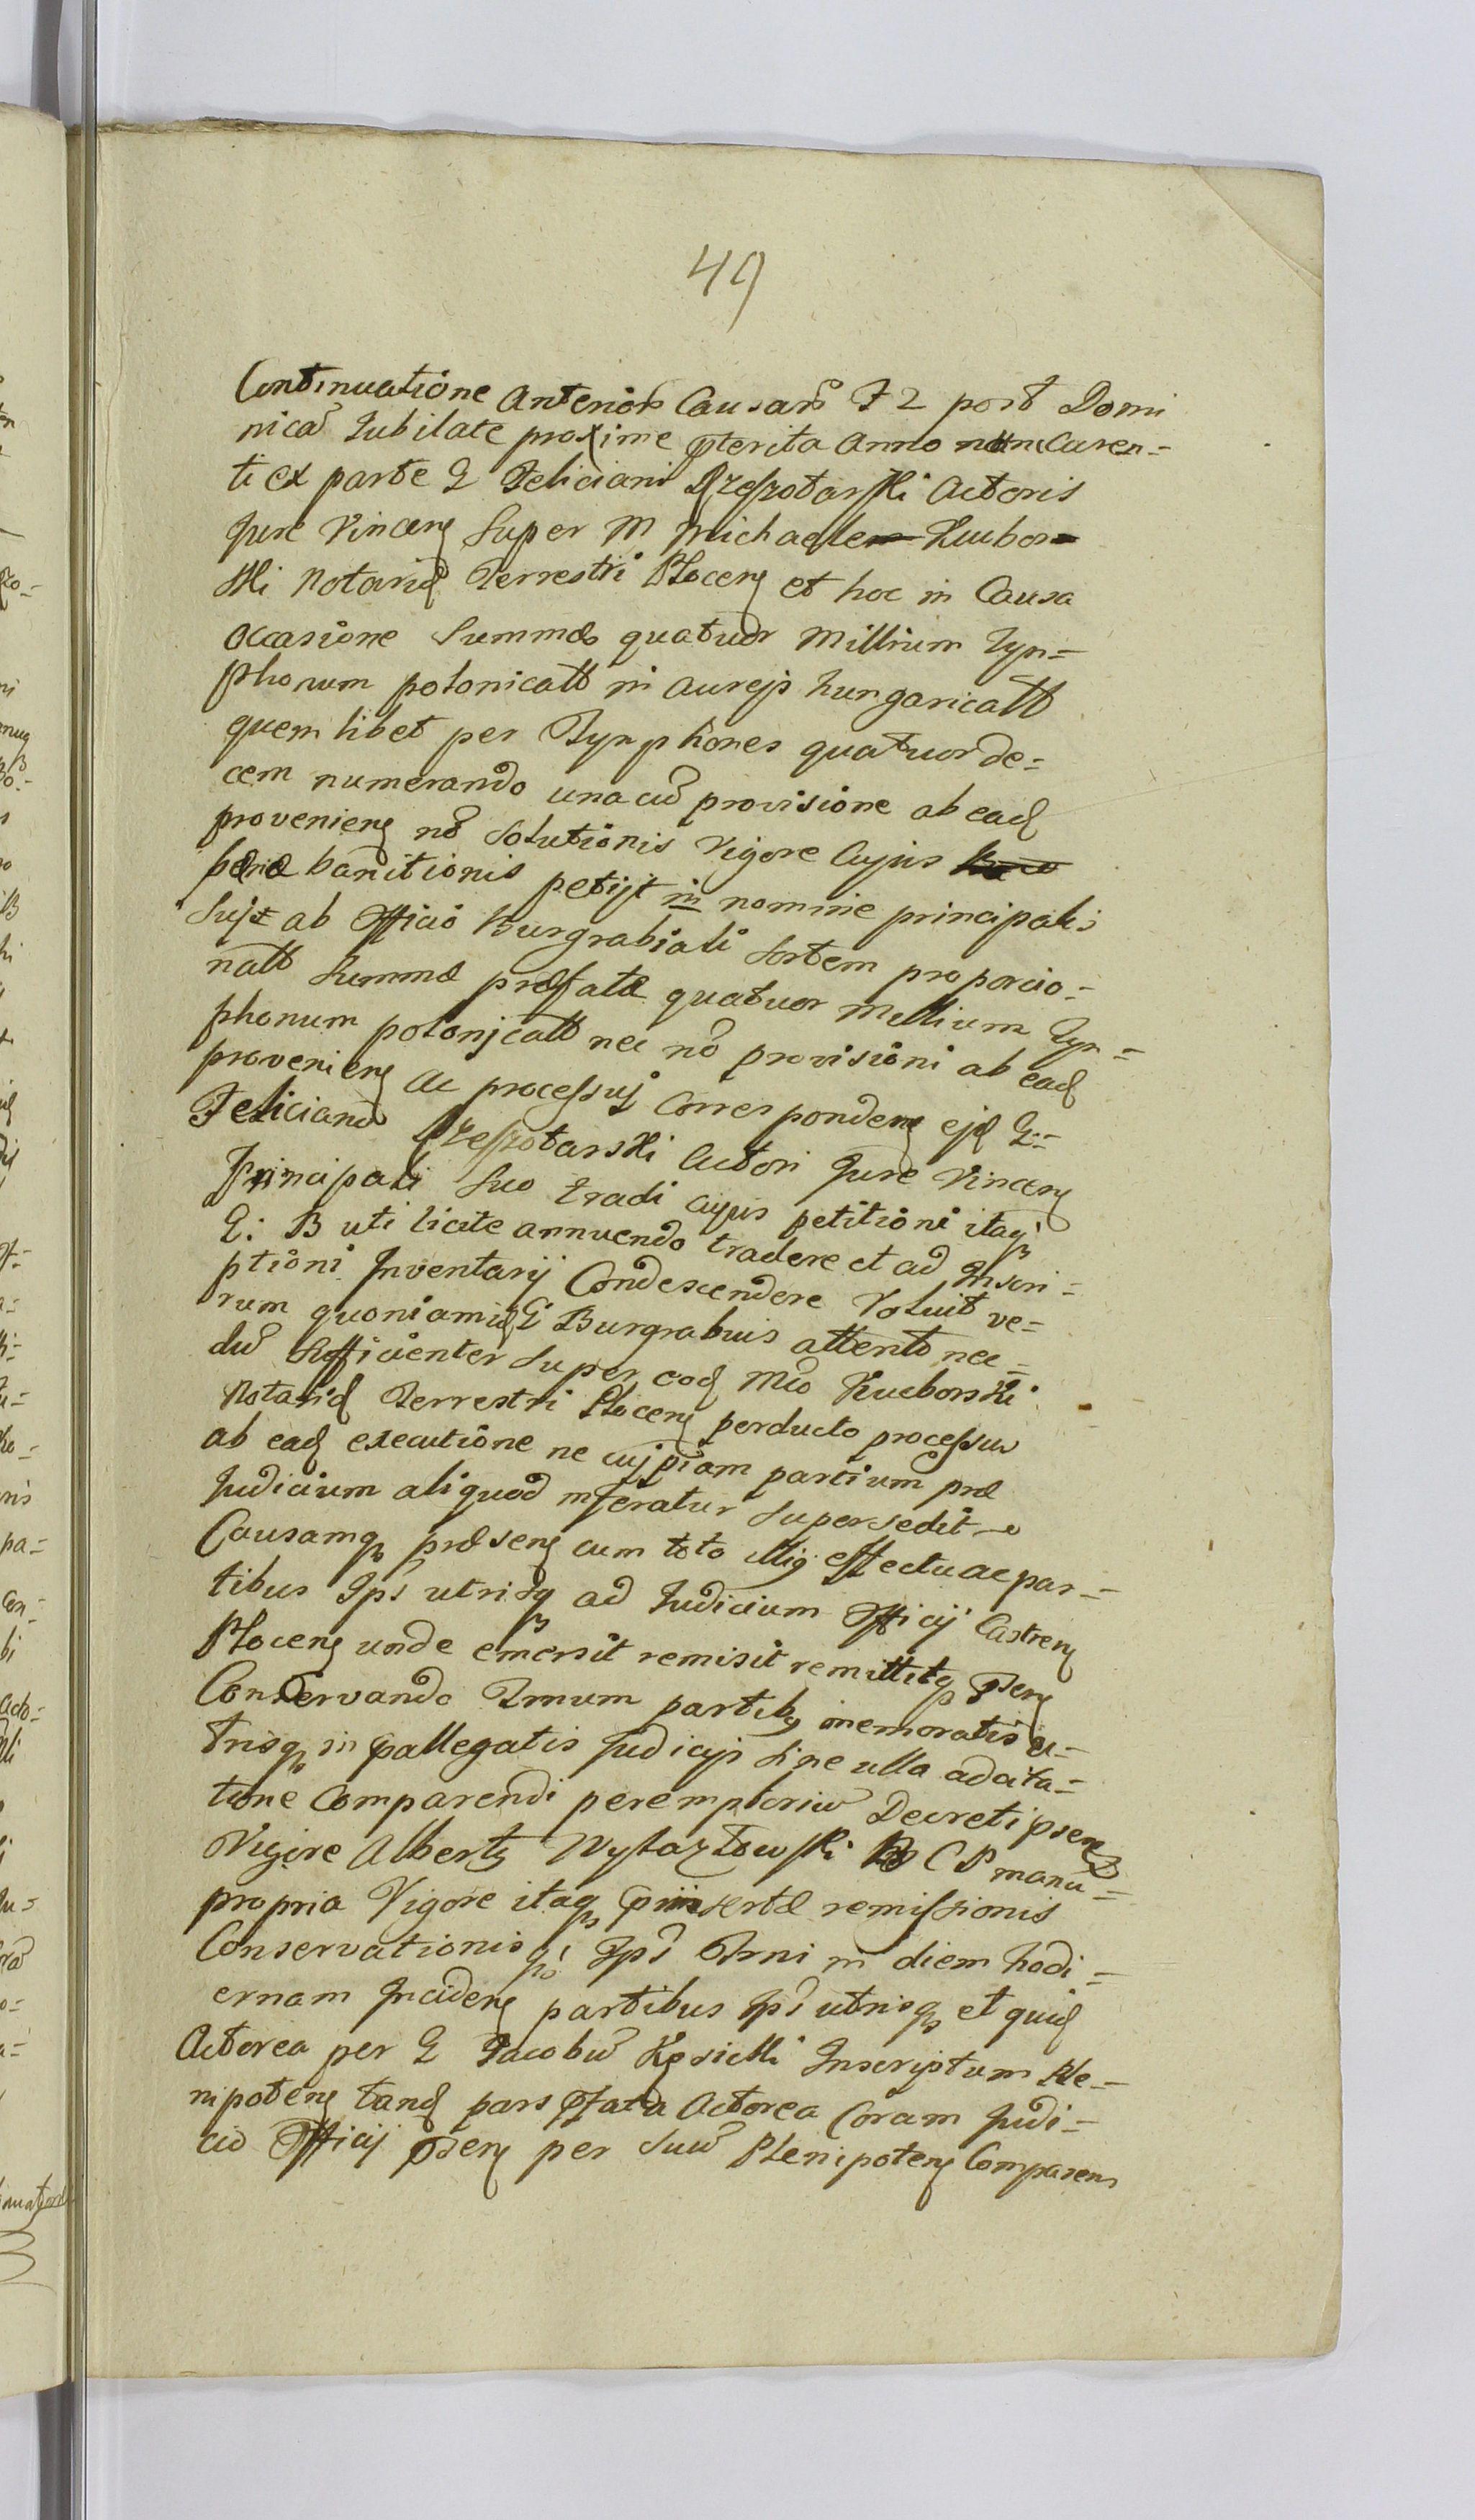 49
Continuatione Anterior Causarũ F 2 post Domi
nicã Jubilate proxime pterita Anno nunc Curen=
ti ex parte G Feliciani Rzeszotarski Actoris
Jure Vincens Super M Michaele Kuebor=
ski Notario Terrestri Plocens et hoc in Causa
Occasione Summæ quatuor Millium Tyn=
phonum polonicalium in aureis hungaricalium
quemlibet per Tynphones quatuorde=
cem numerando una cũ provisione ab ead
proveniens nõ Solutionis Vigore Cujus
pænæ banitionis petijt in nomine principalis
Suj ab Officio Burgrabiali Sortem proporcio=
natt Summæ præfatæ quatuor Millium Tyn=
phonum polonicalium nec nõ provisioni ab ead
proveniens ac processuj Correspondens ejd G:=
Feliciano Rzeszotarski Actori Jure Vincens
Principali Suo tradi cujus petitioni itaq
G: B uti licite annuendo tradere et ad Inscri=
ptioni Inventarij Condescendere Voluit ve=
rum quoniam id G Burgrabius attento nec=
dũ Sufficienter Super eod Mco Kueborski
Notario Terrestri Plocens perducto processu
ab ead executione ne cujpiam partium præ
Judicium aliquod inferatur Supersedit
Causamq præsens cum toto illig effectu ac par=
tibus Ips utrisq ad Judicium Officij Castrens
Plocens unde emersit remisit remittitq psens
Conservando Trnum partibq memoratis u=
trisq in pallegatis Judicijs Sine ulla adcita=
tione Comparendi peremptoriũ Decreti psens
Vigore Albertg Wylazłowski B C P manu=
propria Vigore itaq prinsertæ remissionis
Conservationisq Ips Trni in diem hodi=
ernam Incidens partibus Ips utrisq et quid
Actorea per G Jacobũ Kęsicki Inscriptum Ple=
nipotens tand pars pfata Actorea Coram Judi=
cio Officij psens per Suũ Plenipotens Comparens